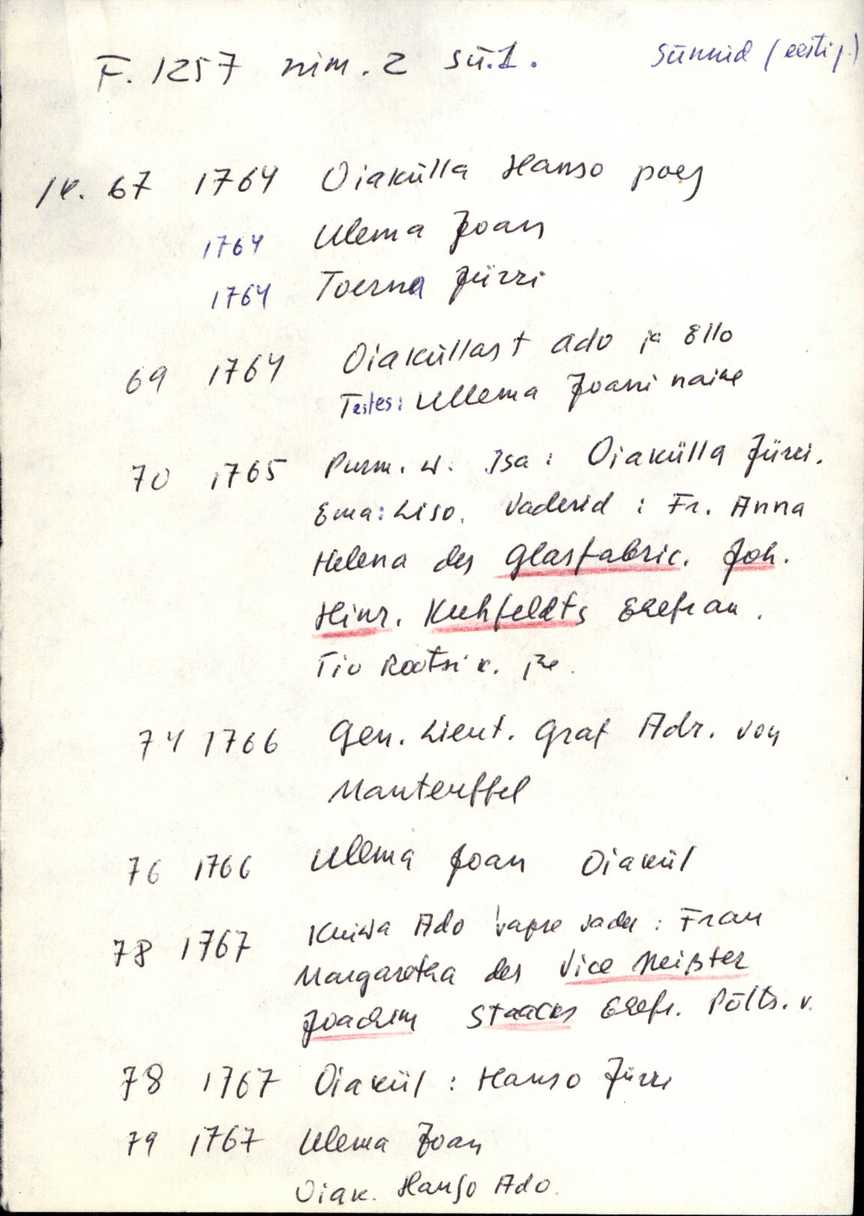 F. 1257 nim. 2 sü.1. Sünnid (eesti j.)
lk. 67 1764 Oiakülla Hanso poeg
1764 Ulema Joan
1764 Toerna Jürri
69 1764 Oiaküllast Ado ja Ello
Testes: Ullema Joani naine
70 1765 Purm. w. Isa: Oiakülla Jürri.
Ema: Liso. Vaderid: Fr. Anna
Helena des Glasfabric. Joh.
Hinr. Kuhfeldts Ehefrau.
Tio Rootsi k.
74 1766 Gen. Lieut. Graf Adr. von
Manteuffel
76 1766 Ulema Joan Oiakül
78 1767 Ado vader: Frau
Margaretha des Vice Meißter
Joachim Staacks Ehefr. Põlts. v.
78 1767 Oiakül: Hanso Jürri
79 1767 Ulema Joan
Oiak. Hanso Ado.